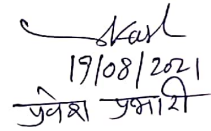 19/08/2021
प्रवेश प्रभारी